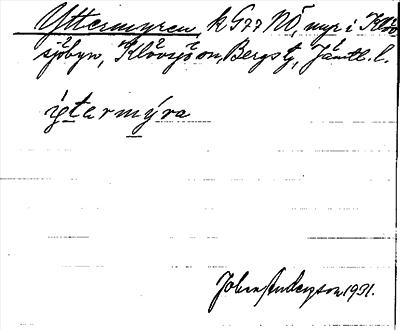 Yttermyren k G 77 NÖ, myr i Klöv
sjöbyn, Klövsjö sn, Bergs tg, Jämtl. l.
ỳtermýra
John Anderson 1931.